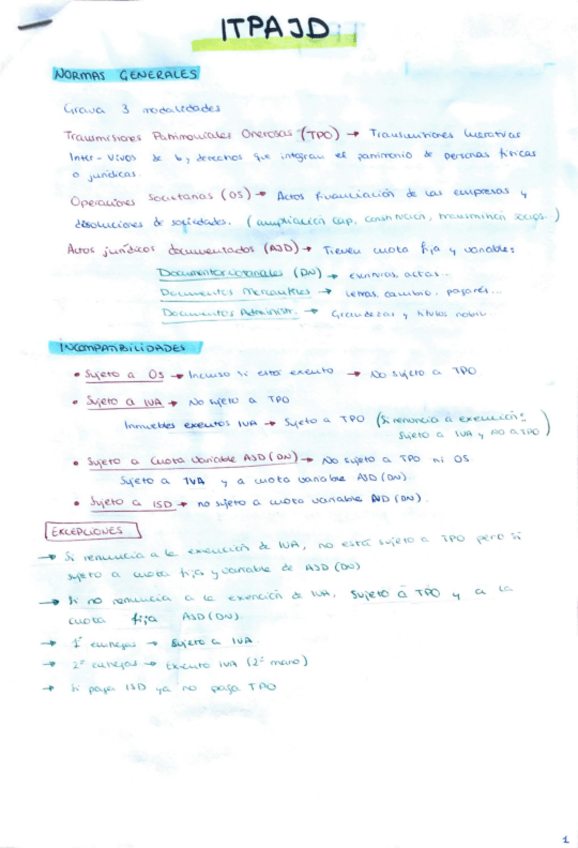 ITPAJD
NORMAS GENERALES
Grava 3 modalidades
Transmisiones Patrimoniales Onerosas (TPO) → Transmisiones lucrativas
Inter-vivos de b y derechos que integran el patrimonio de personas físicas
o jurídicas.
Operaciones Societarias (OS) → Actos financiación de las empresas y
disoluciones de sociedades. (ampliación cap, constitución, transmisión socios...)
Actos jurídicos documentados (AJD) → Tienen cuota fija y variable:
Documentos notariales (DN) → escrituras, actas...
Documentos Mercantiles → letras, cambio, pagarés...
Documentos Administr. → Grandezas y títulos nobil...
INCOMPATIBILIDADES
• Sujeto a OS → Incluso si está exento → No sujeto a TPO
• Sujeto a IVA → No sujeto a TPO
Inmuebles exentos IVA → Sujeto a TPO (Si renuncia a exención:
Sujeto a IVA y no a TPO)
• Sujeto a cuota variable AJD (DN) → No sujeto a TPO ni OS
Sujeto a IVA y a cuota variable AJD (DN)
• Sujeto a ISD → no sujeto a cuota variable AJD (DN).
EXCEPCIONES
→ Si renuncia a la exención de IVA, no está sujeto a TPO pero si
sujeto a cuota fija y variable de AJD (DN)
→ Si no renuncia a la exención de IVA, sujeto a TPO y a la
cuota fija AJD (DN).
→ 1ª entregas → Sujeto a IVA
→ 2ª entregas → Exento IVA (2ª mano)
→ Si paga ISD ya no paga TPO
1